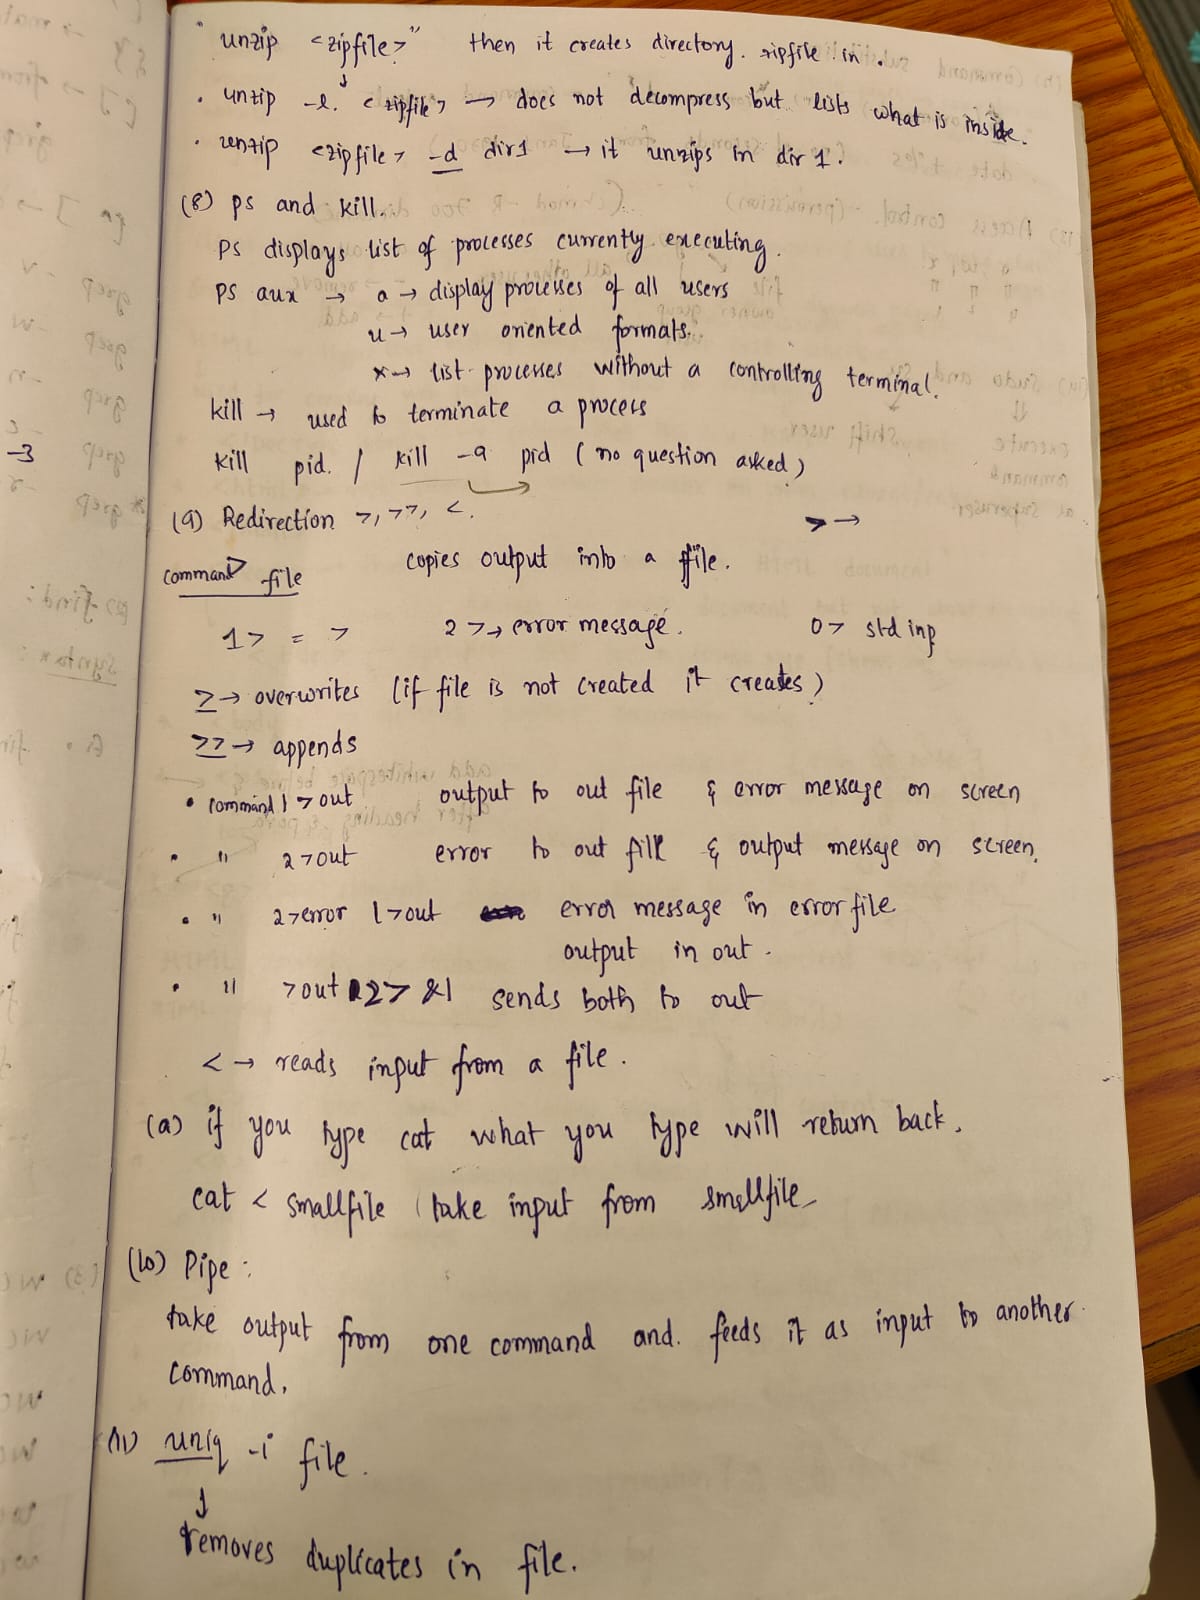 " unzip <zipfile>" then it creates directory. zipfile in.
. unzip -l. <zipfile> → does not decompress but lists what is inside.
. unzip <zipfile> -d dir1 → it unzips in dir 1.
(8) ps and kill.
ps displays list of processes currently executing.
ps aux → a → display processes of all users
u → user oriented formats.
x → list processes without a controlling terminal.
kill → used to terminate a process
kill pid. / kill -9 pid (no question asked)
(9) Redirection >, >>, <. > →
command > file copies output into a file.
1> = > 2> → error message. 0> std inp
> → overwrites (if file is not created it creates)
>> → appends
• command 1 >out output to out file & error message on screen
• " 2>out error to out file & output message on screen.
• " 2>error 1>out error message in error file
output in out.
• " >out 2> &1 sends both to out
< → reads input from a file.
(a) if you type cat what you type will return back.
cat < smallfile (take input from smallfile
(10) Pipe:
take output from one command and. feeds it as input to another
command.
(11) uniq -i file.
↓
removes duplicates in file.